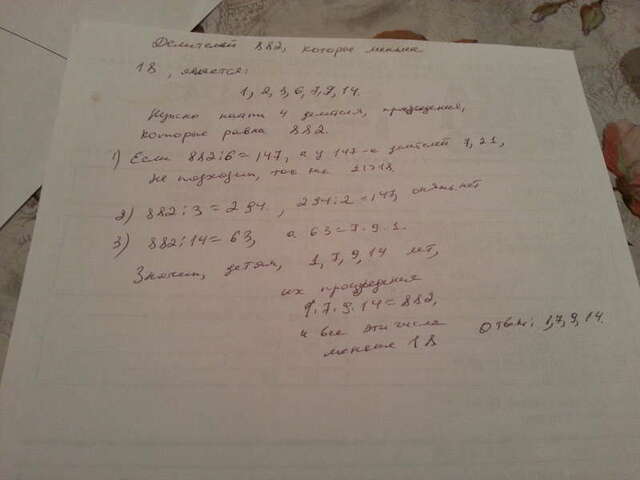 Делителей 882, которые меньше
18, является:
1, 2, 3, 6, 7, 9, 14.
Нужно найти 4 делителя, произведения,
которые равна 882
1) Если 882:6=147, а у 147-и делителей 7, 21,
не подходит, так как 21>18
2) 882:3=294, 294:2=147, опять не
3) 882:14=63, а 63=7·9·1.
Значит, детям, 1, 7, 9, 14 лет,
их произведения
1·7·9·14=882,
и все эти числа
меньше 18
Ответ: 1, 7, 9, 14.